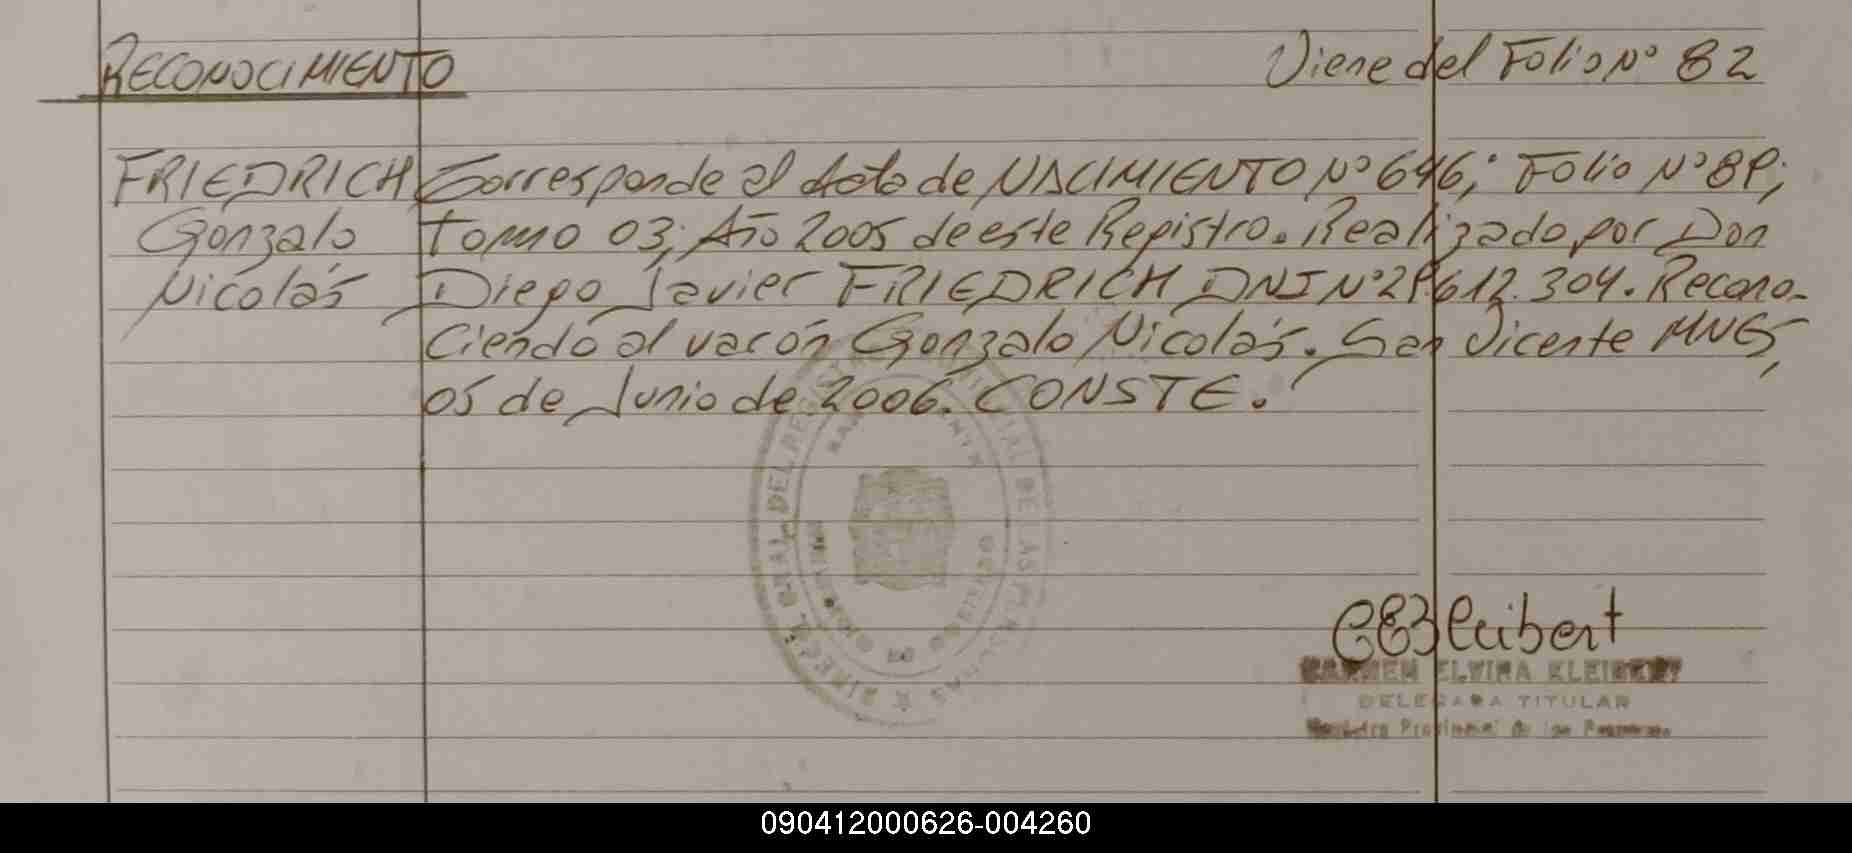 RECONOCIMIENTO Viene del Folio Nº 82
FRIEDRICH Corresponde al Acta de NACIMIENTO Nº 646; Folio Nº 89;
Gonzalo Tomo 03; Año 2005 de este Registro. Realizado por Don
Nicolás Diego Javier FRIEDRICH DNI Nº 29.612.304. Recono-
ciendo al varón Gonzalo Nicolás. San Vicente MNES,
05 de Junio de 2006. CONSTE.
CEKleibert
CARMEN ELVIRA KLEIBERT
DELEGADA TITULAR
Registro Provincial de las Personas
090412000626-004260